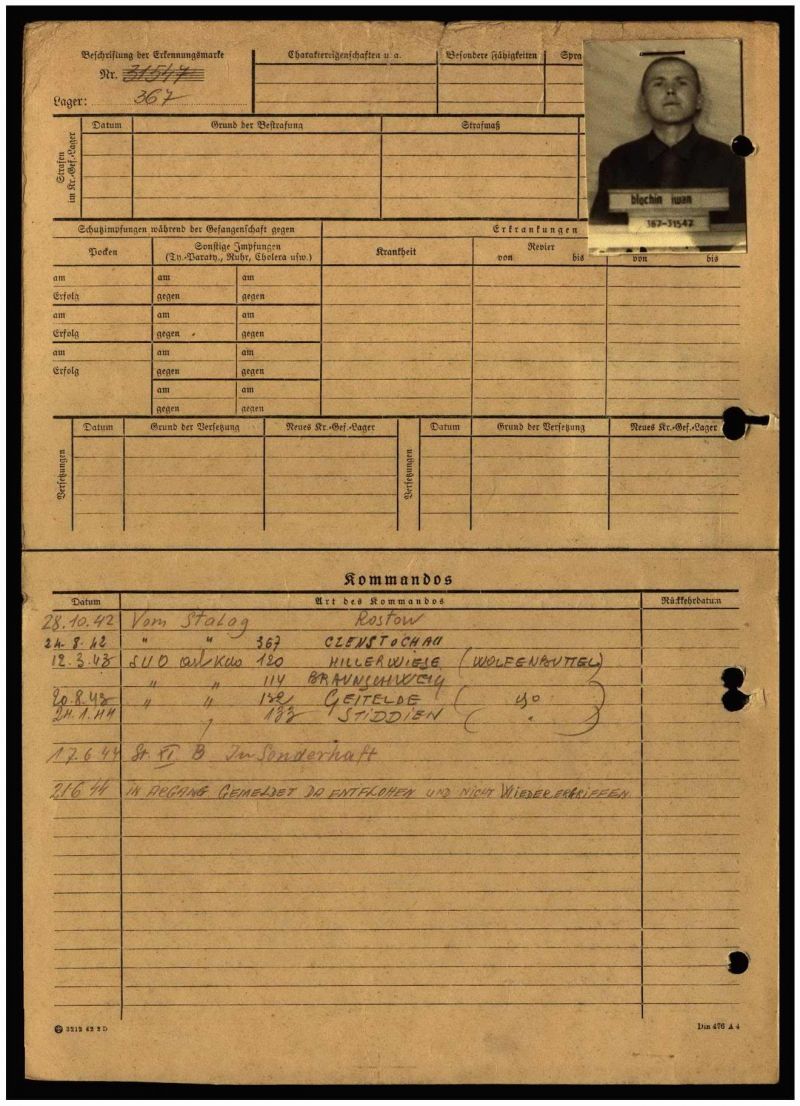 Beschriftung der Erkennungsmarke
Nr. 31547
Lager: 367
Charaktereigenschaften u. a.
Besondere Fähigkeiten
Spra
blochin iwan
367-31547
Strafen im Kr.-Gef.-Lager
Datum Grund der Bestrafung Strafmaß
Schutzimpfungen während der Gefangenschaft gegen
Erkrankungen
Pocken
Sonstige Impfungen
(Ty.-Paraty., Ruhr, Cholera usw.)
Krankheit
Revier
von bis
von bis
am am am
Erfolg gegen gegen
am am am
Erfolg gegen gegen
am am am
Erfolg gegen gegen
am am
gegen gegen
Versetzungen
Datum Grund der Versetzung Neues Kr.-Gef.-Lager
Versetzungen
Datum Grund der Versetzung Neues Kr.-Gef.-Lager
Kommandos
Datum Art des Kommandos Rückkehrdatum
28.10.42 Vom Stalag Rostow
24.8.42 " " 367 CZENSTOCHAU
12.3.43 Kdo 120 HILLERWIESE (WOLFENBUTTEL)
" " 114 BRAUNSCHWEIG
20.8.43 " " 132 GEITELDE ( go )
24.1.44 " 133 STIDDIEN ( " )
17.6.44 St. XI B In Sonderhaft
21.6.44 IN ABGANG GEMELDET DA ENTFLOHEN UND NICHT WIEDERERGRIFFEN
3212 42 2 D
Din 476 A 4